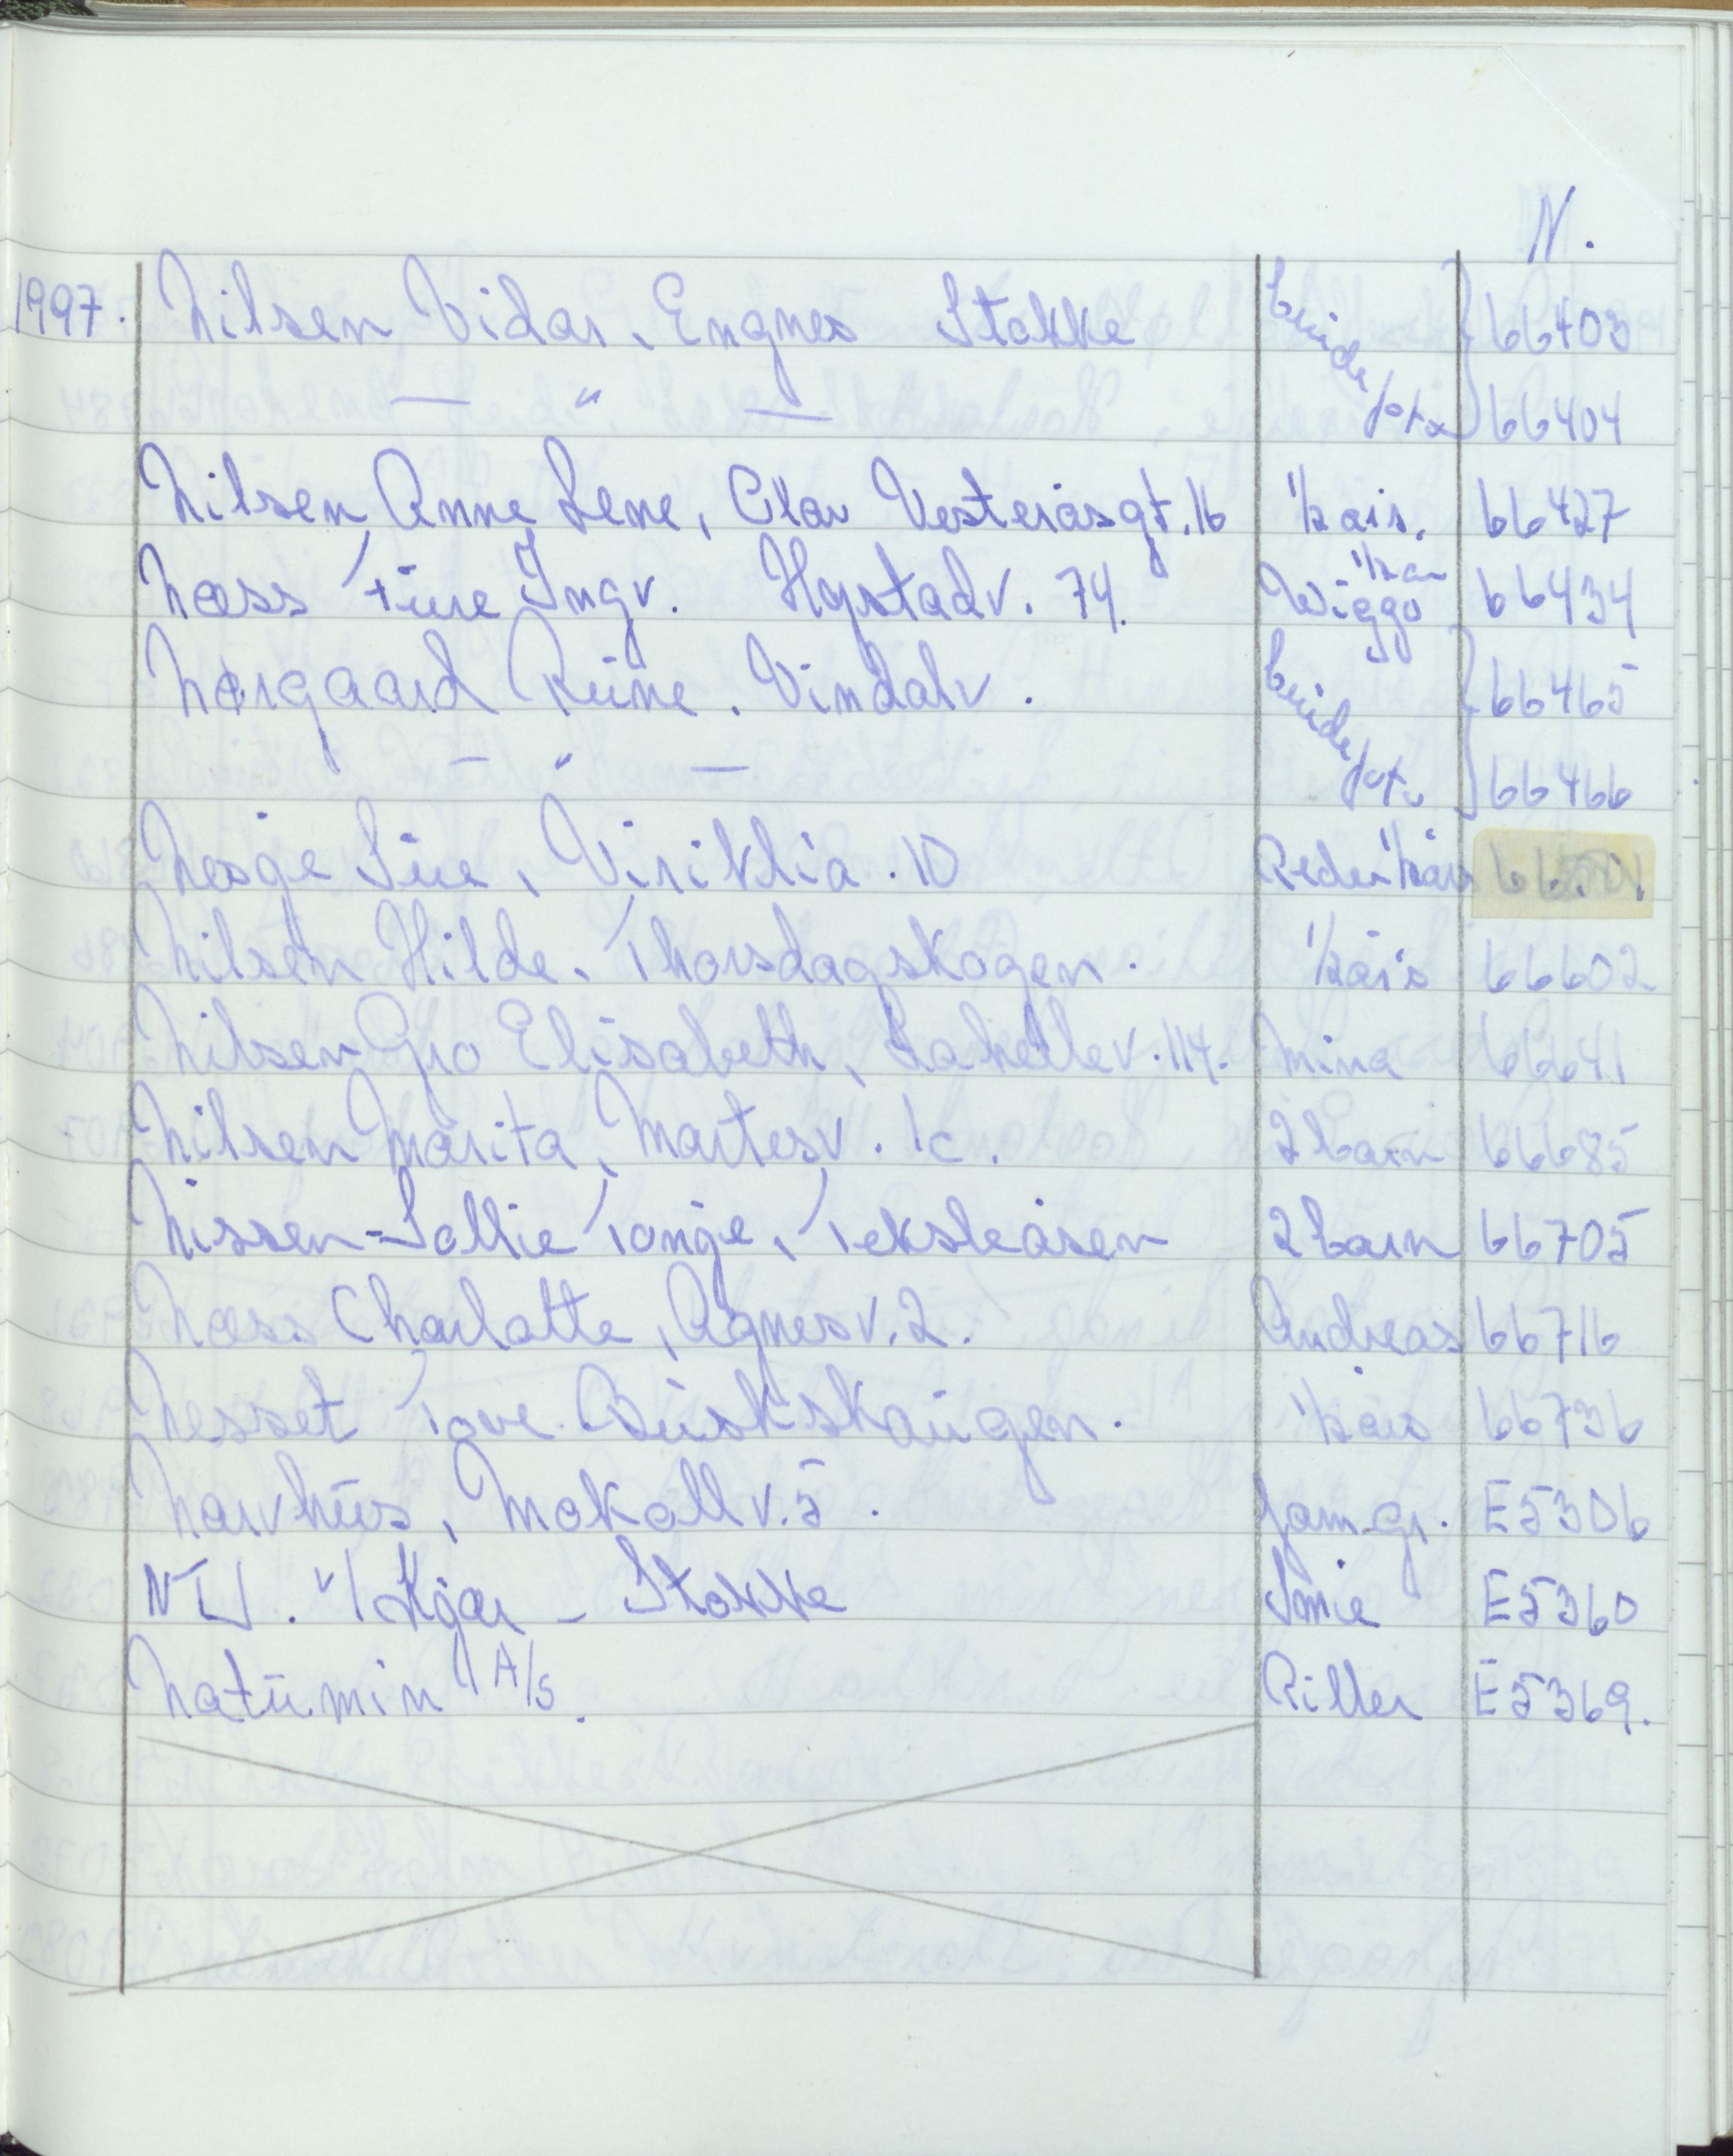 N.
1997. Nilsen Vidar, Engnes Stokke brude fot. } 66403
— " — 66404
Nilsen, Anne Lene, Olav Vesteråsgt. 16 1 barn. 66427
Næss Ture Ingv. Hystadv. 74. 1 barn Wiggo 66434
Nørgaard Rune. Vindalv. brude fot. } 66465
— " — 66466
Nesje Siw, Viriklia. 10
Nilsen Hilde. Thorsdagskogen. 1 barn 66602
Nilsen Gro Elisabeth, Lahellev. 114. Mina 66641
Nilsen Marita, Martesv. 1c. 2 barn 66685
Nissen-Sollie Tonje, Feksleåsen 2 barn 66705
Næss Charlotte, Agnesv. 2. Andreas 66716
Nesset Tove. Buskskaugen. 1 barn 66736
Narvhus, Mokollv. 5. fam.gr. E5306
Kjær - Stokke E5360
Natumin A/S. E5369.